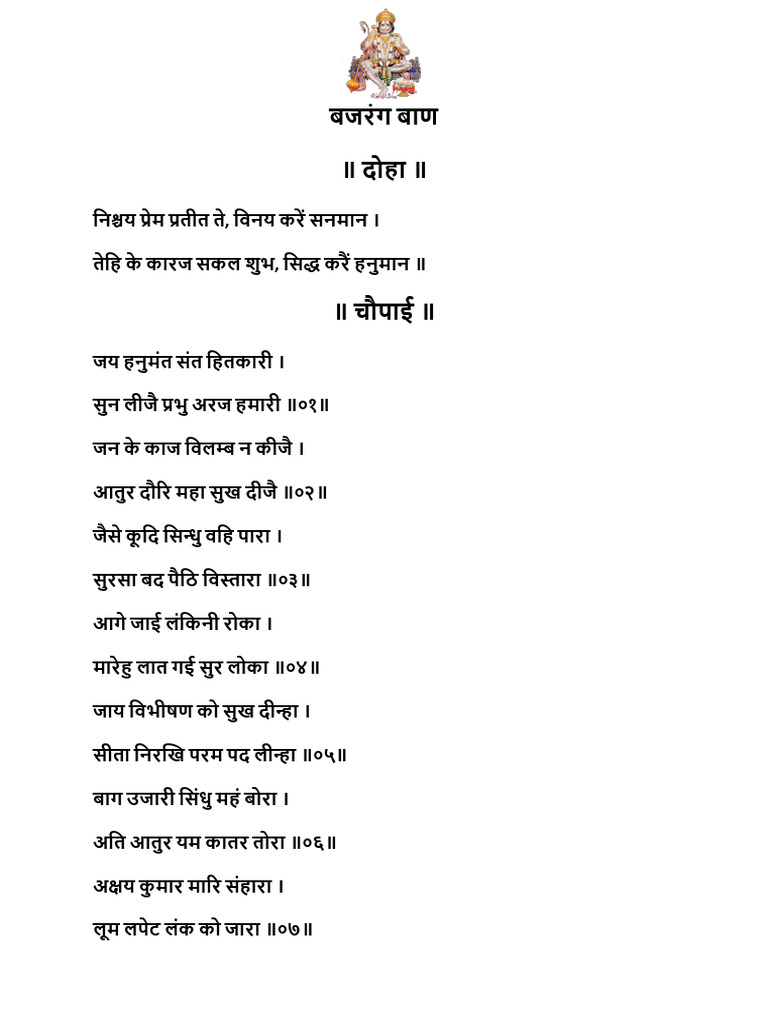 बजरंग बाण
॥ दोहा ॥
निश्चय प्रेम प्रतीत ते, विनय करें सनमान ।
तेहि के कारज सकल शुभ, सिद्ध करैं हनुमान ॥
॥ चौपाई ॥
जय हनुमंत संत हितकारी ।
सुन लीजै प्रभु अरज हमारी ॥०१॥
जन के काज विलम्ब न कीजै ।
आतुर दौरि महा सुख दीजै ॥०२॥
जैसे कूदि सिन्धु वहि पारा ।
सुरसा बद पैठि विस्तारा ॥०३॥
आगे जाई लंकिनी रोका ।
मारेहु लात गई सुर लोका ॥०४॥
जाय विभीषण को सुख दीन्हा ।
सीता निरखि परम पद लीन्हा ॥०५॥
बाग उजारी सिंधु महं बोरा ।
अति आतुर यम कातर तोरा ॥०६॥
अक्षय कुमार मारि संहारा ।
लूम लपेट लंक को जारा ॥०७॥